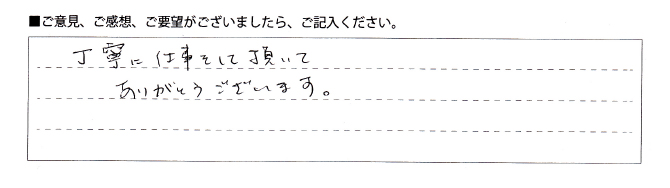 ■ご意見、ご感想、ご要望がございましたら、ご記入ください。
丁寧に仕事をして頂いて
ありがとうございます。